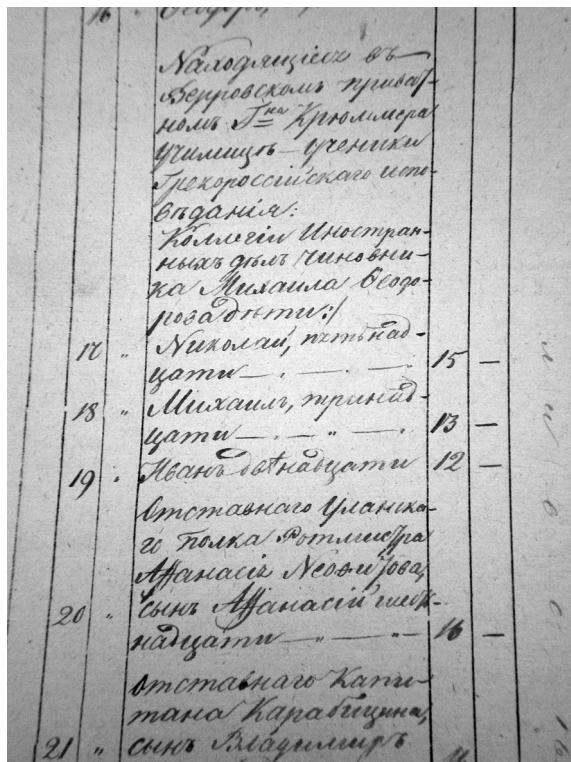 16 "
Находящіеся въ
Верровскомъ приват-
номъ Гна Крюммера
училищѣ ученики
Грекороссійскаго испо-
вѣданія:
Коллегіи Иностран-
ныхъ дѣлъ чиновни-
ка Михаила Ѳеодо-
рова дѣти:/
17 " Николай, пятьнад-
цати — . — . — 15 —
18 " Михаилъ, тринад-
цати — . — " — . 13 —
19 " Иванъ двѣнадцати 12 —
Отставнаго Уланска-
го полка Ротмистра
Аѳанасія
20 " сынъ Аѳанасій шест-
надцати — " — " — 16 —
отставнаго Капи-
тана Карабицина,
21 " сынъ Владимиръ